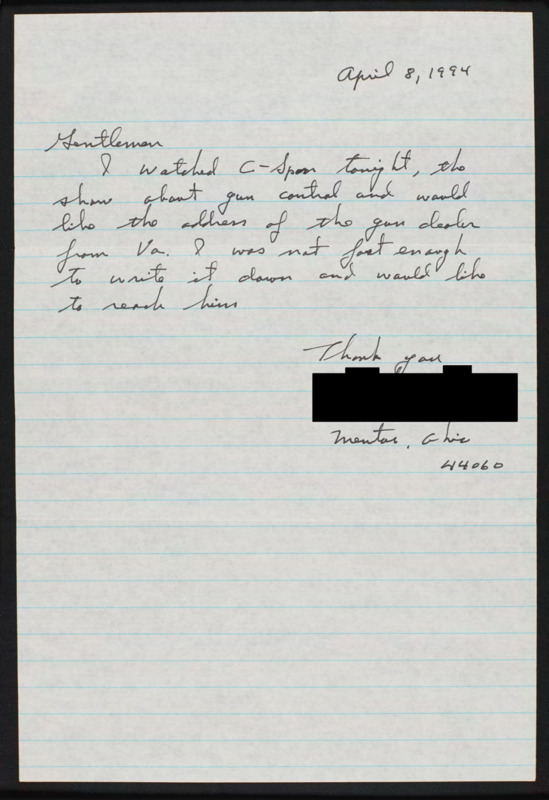 April 8, 1994
Gentlemen
I watched C-Span tonight, the
show about gun control and would
like the address of the gun dealer
from Va. I was not fast enough
to write it down and would like
to reach him
Thank you
Mentor, Ohio
44060